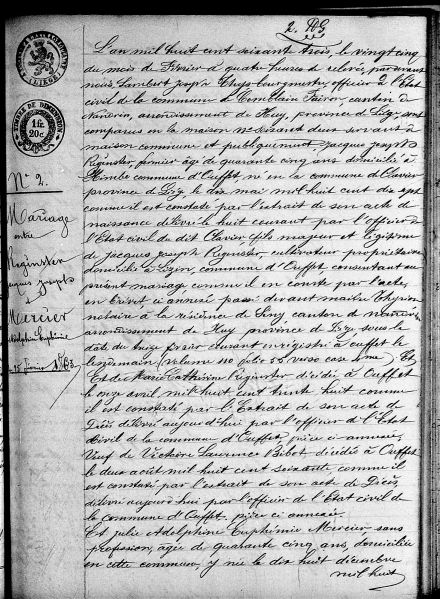 2. RG
TIMBRE DE DIMENSION
1 fr.
20 c.
N° 2.
Mariage
entre
Reginster
Jacques Joseph
&
Mercier
Adelphine Euphémie
25 février 1863
L'an mil huit cent soixante trois, le vingt cinq
du mois de Février à quatre heures de relevée, par devant
nous Lambert Joseph Thys bourgmestre, officier de l'Etat
civil de la commune de Comblain Fairon, canton de
Nandrin, arrondissement de Huy, province de Liège, sont
comparus en la maison servant de
maison commune et publiquement Jacques Joseph
Reginster, fermier âgé de quarante cinq ans domicilié à
commune d'Ouffet né en la commune de Clavier
province de Liège le dix mai mil huit cent dix sept
comme il est constaté par l'extrait de son acte de
naissance délivré le huit courant par l'officier de
l'Etat civil du dit Clavier, fils majeur et légitime
de Jacques Joseph Reginster, cultivateur propriétaire
domicilié à commune d'Ouffet consentant au
présent mariage comme il en conste par l'acte
en brevet ci annexé passé devant maître Thyrion
notaire à la résidence de canton de Nandrin
arrondissement de Huy province de Liège sous la
date du onze février courant enregistré à Ouffet le
lendemain (volume 110 folio 55 verso case 2me) Et
Et de Marie Catherine Reginster décédée à Ouffet
le onze avril mil huit cent trente huit comme
il est constaté par l'Extrait de son acte de
Décès délivré aujourd'hui par l'officier de l'Etat
Civil de la commune d'Ouffet, pièce ci annexée,
Veuf de Victoire Laurence Bibot décédée à Ouffet
le deux août mil huit cent soixante comme il
est constaté par l'extrait de son acte de Décès,
délivré aujourd'hui par l'officier de l'Etat civil de
la commune d'Ouffet, pièce ci annexée.
Et Julie Adelphine Euphémie Mercier sans
profession, âgée de quarante cinq ans, domiciliée
en cette commune, y née le dix huit décembre
mil huit